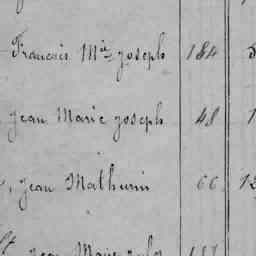 François M.ie Joseph 184
Jean Marie Joseph 48 1
Jean Mathurin 66 12
Jean Marie